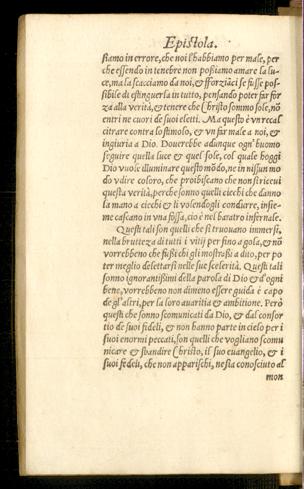 Epistola.
stiamo in errore, che noi l'habbiamo per male, per
che essendo in tenebre non possiamo amare la lu-
ce, ma la scacciamo da noi, & sforziaci se fusse pos-
sibile di estinguerla in tutto, pensando poter far for
za alla verità, & tenere che Christo sommo sole, nō
entri ne cuori de suoi eletti. Ma questo è vn recal
citrare contra lo stimolo, & vn far male a noi, &
ingiuria a Dio. Douerebbe adunque ogn' huomo
seguire quella luce & quel sole, col quale hoggi
Dio vuole illuminare questo mōdo, ne in nissun mo
do vdire coloro, che prohibiscano che non si riceui
questa verità, perche sonno quelli ciechi che danno
la mano a ciechi & li volendogli condurre, insie-
me cascano in vna fossa, cio è nel baratro infernale.
Questi tali son quelli che si truouano immersi,
nella bruttezza di tutti i vitij per fino a gola, & nō
vorrebbeno che fussi chi gli mostrassi a dito, per po
ter meglio delettarsi nelle sue scelerità. Questi tali
sonno ignorantissimi della parola di Dio & d'ogni
bene, vorrebbeno non dimeno essere guida & capo
de gl'altri, per la loro auaritia & ambitione. Però
questi che sonno scomunicati da Dio, & dal consor
tio de suoi fideli, & non hanno parte in cielo per i
suoi enormi peccati, son quelli che vogliano scomu
nicare & sbandire Christo, il suo euangelio, & i
suoi fideli, che non apparischi, ne sia conosciuto al
mon